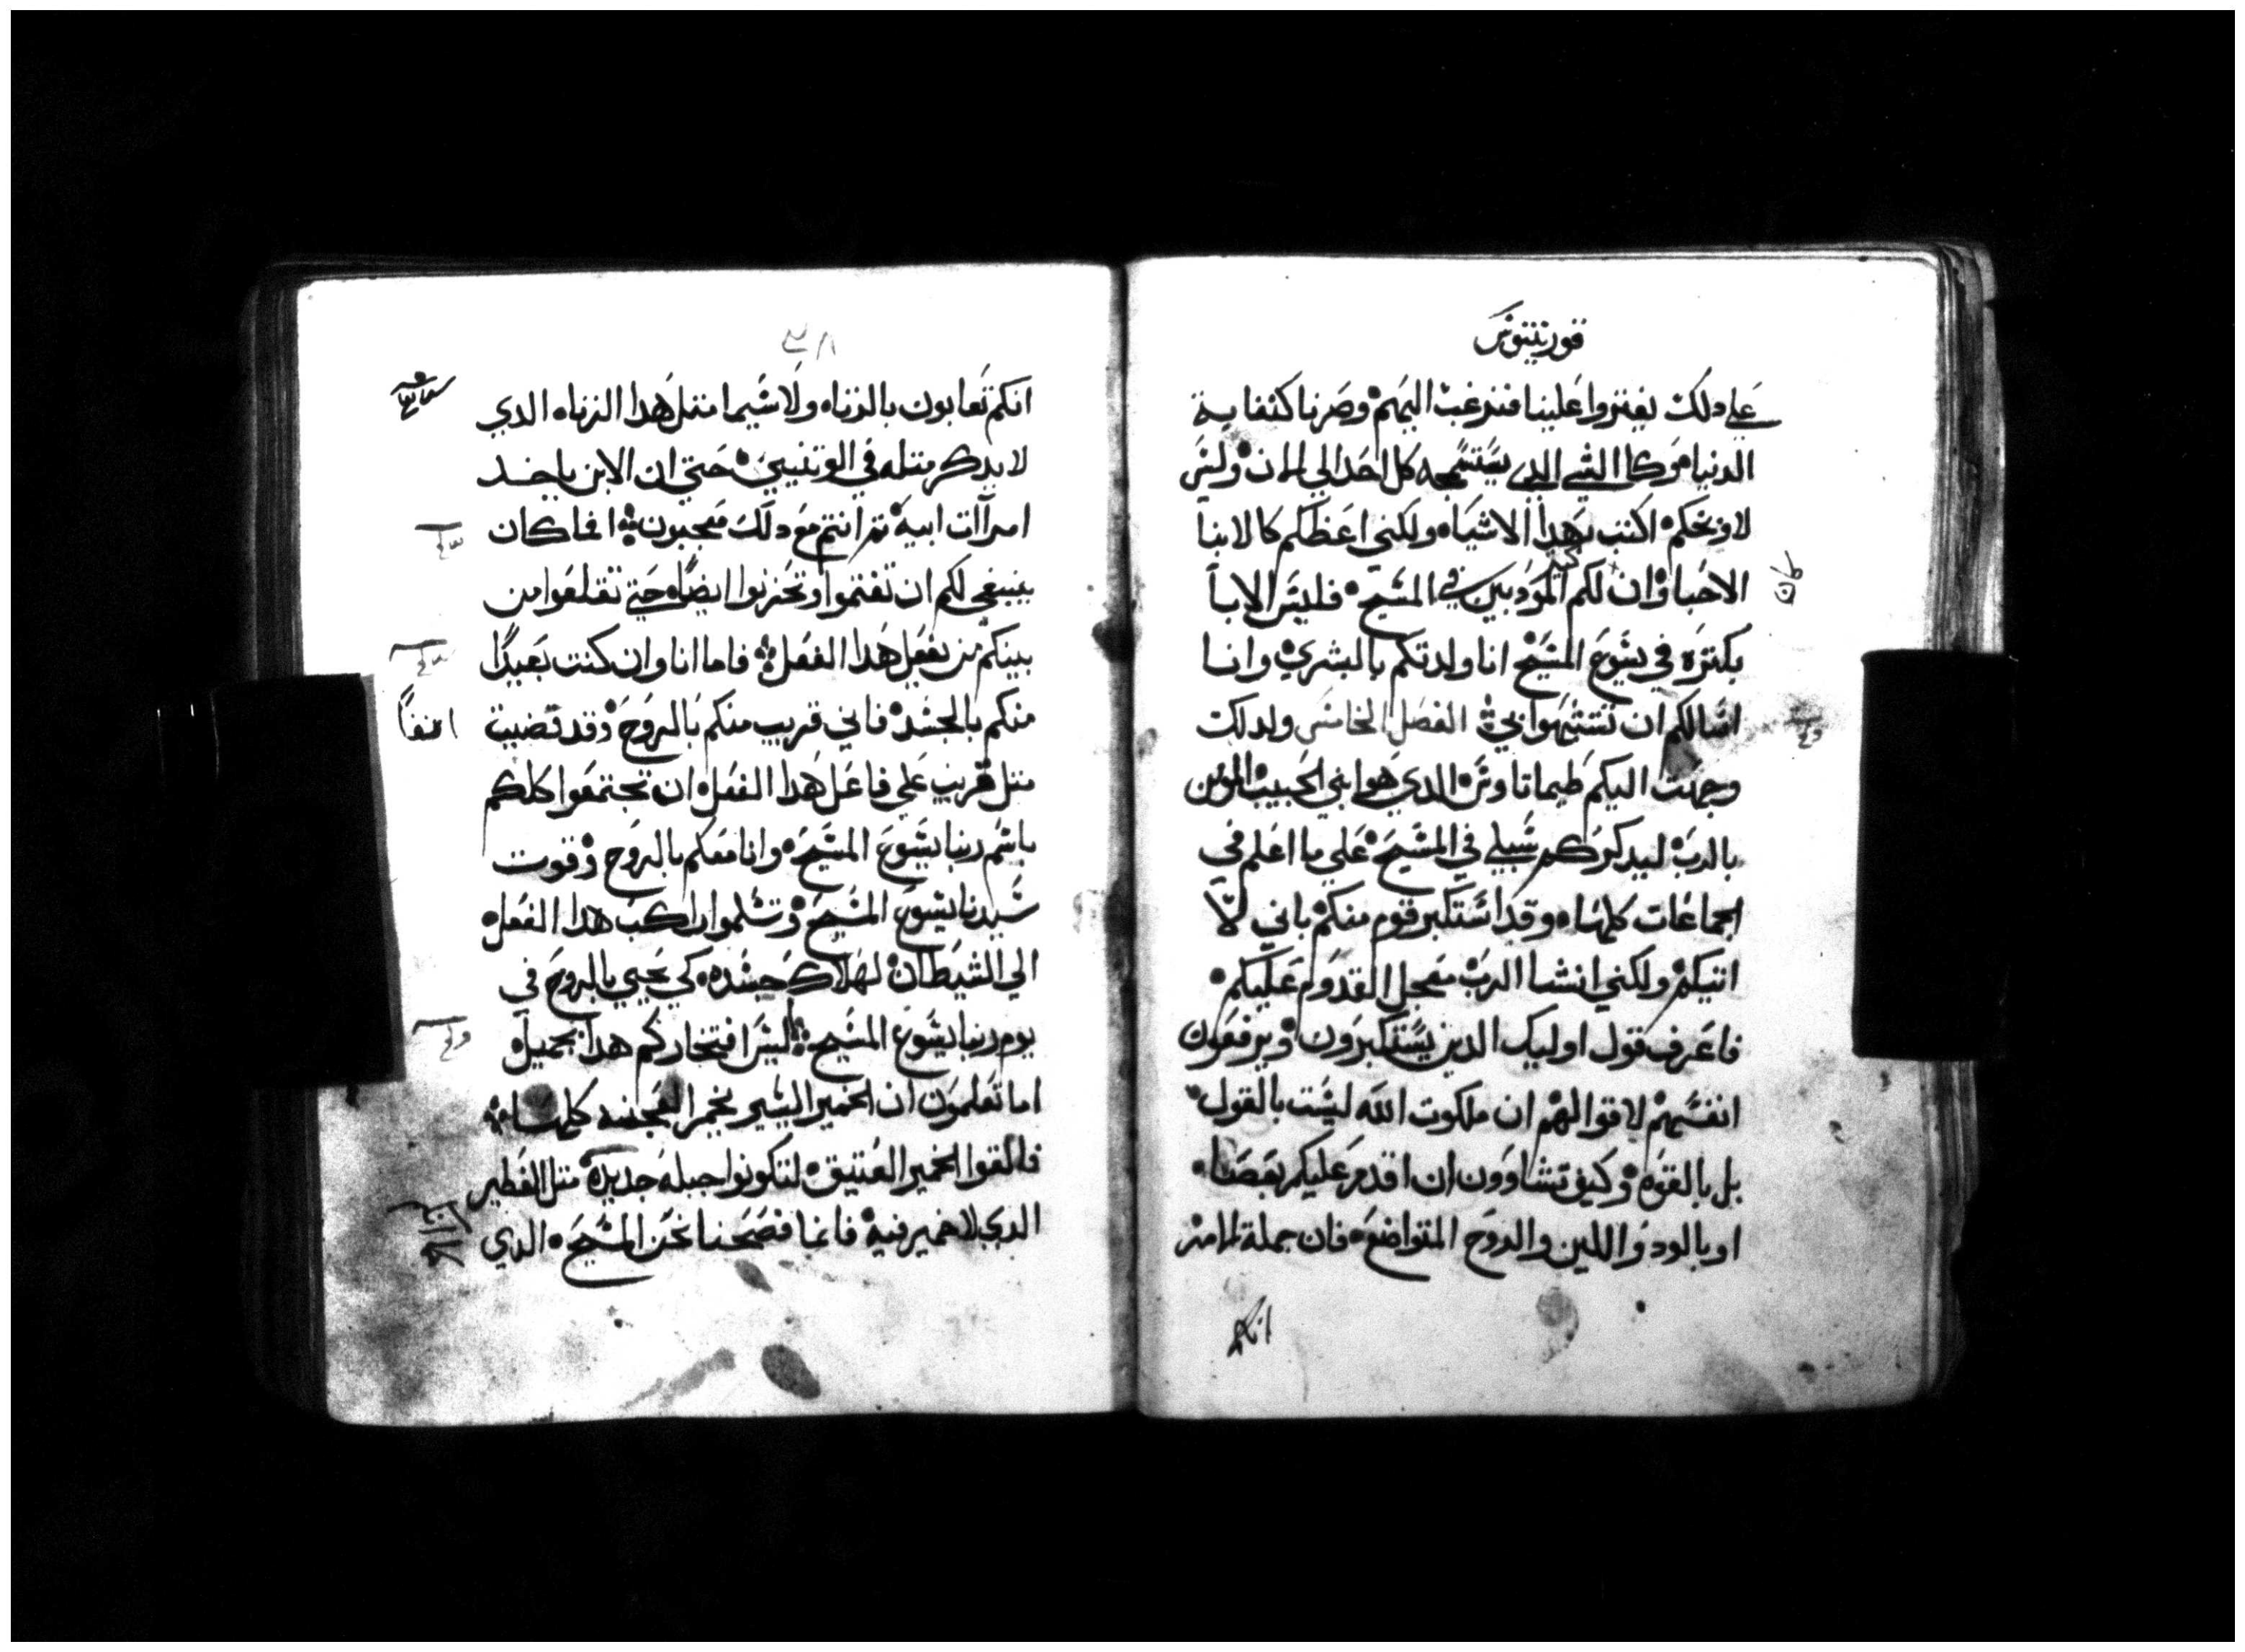 قورنتيوس
علي دلك يفتروا علينا فنرغب اليهم وصرنا كنفاية
الدنيا وكالشي الدي يستسمجه كل احد الي الان وليس
لاوبخكم اكتب بهدا الاشياء ولكني اعظكم كالابنا
الاحبا وان لكم المودبين في المسيح فليس الابا
بكتره في يشوع المسيح انا ولدتكم بالبشري وانا
اسالكم ان تتشبهوا بي الفصل الخامس ولدلك
وجهت اليكم طيماتاوس الدي هو ابني الحبيب المومن
بالرب ليدكركم سبلي في المسيح علي ما اعلم في
الجماعات كلها وقد استكبر قوم منكم باني لا
اتيكم ولكني انشا الرب معجل القدوم عليكم
فاعرف قول اوليك الدين يستكبرون ويرفعون
انفسهم لاقوالهم ان ملكوت الله ليست بالقول
بل بالقوه وكيف تشاوون ان اقدم عليكم بعصا
او بالود واللين والروح المتواضعه فان جملة الامر
انكم
انكم تعابون بالزناه ولاسيما متل هدا الزناه الدي
لا يدكر متله في الوتنيين حتي ان الابن ياخد
امرآات ابيه تم انتم مع دلك معجبون انما كان
ينبغي لكم ان تغتموا وتحزنوا ايضا حتي تقلعوا من
بينكم من يفعل هدا الفعل فاما انا وان كنت بعيدا
منكم بالجسد فاني قريب منكم بالروح وقد قضيت
متل قريب علي فاعل هدا الفعل ان تجتمعوا كلكم
باسم ربنا يشوع المسيح وانا معكم بالروح وقوت
سيدنا يشوع المسيح وتسلموا راكب هدا الفعل
الي الشيطان لهلاك جسده كي يحيي بالروح في
يوم ربنا يشوع المسيح ليس افتخاركم هدا بجميل
اما تعلمون ان الخمير اليسير يخمر العجنه كلها
فالقوا الخمير العتيق لتكونوا جبله جديده متل الفطير
الدي لا خمير فيه فانما فصحنا نحن المسيح الدي